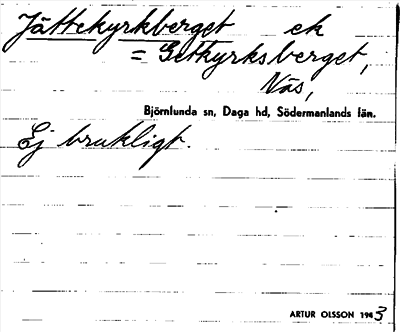 Jättekyrkberget ek
= Getkyrksberget,
Näs,
Björnlunda sn, Daga hd, Södermanlands län.
Ej brukligt.
ARTUR OLSSON 1943